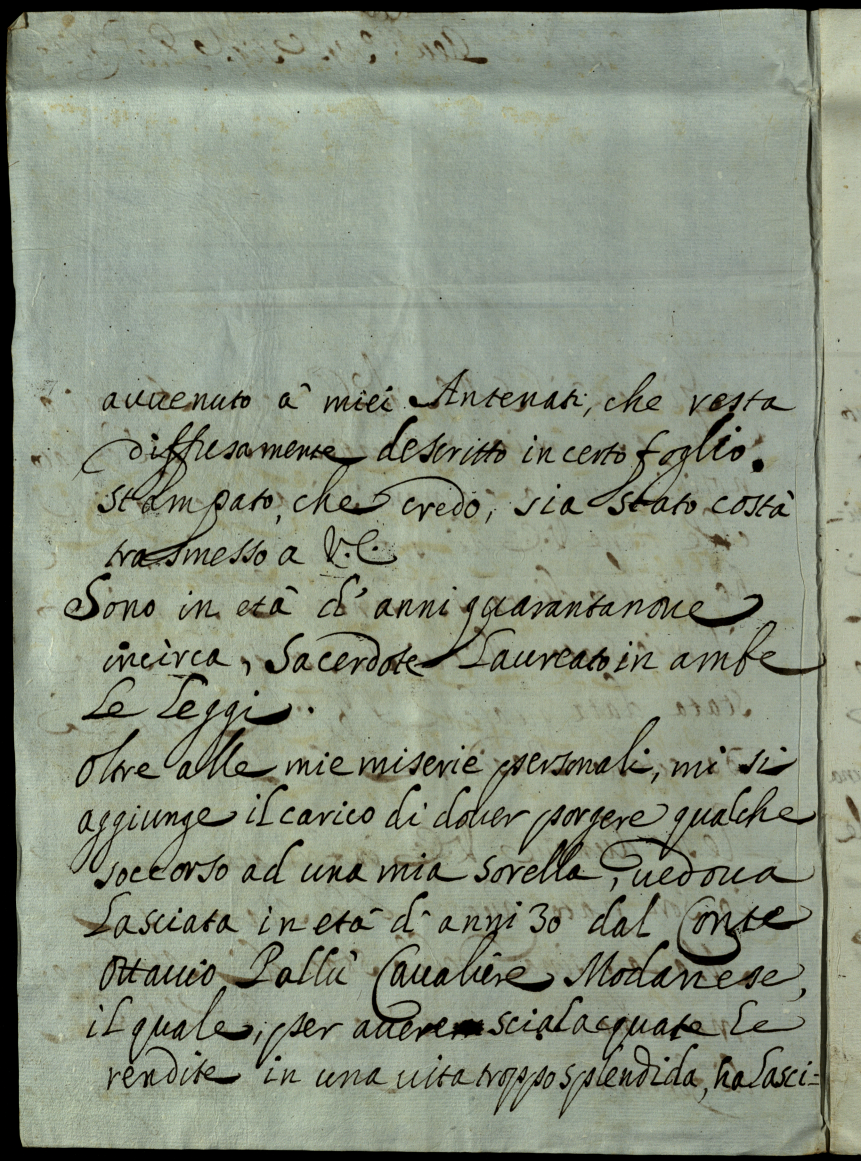 auuenuto a' miei Antenati, che resta
diffusamente descritto in certo foglio.
stampato, che credo, sia stato costà
trasmesso a V.E.
Sono in età d'anni quarantanoue
incirca, Sacerdote Laureato in ambe
Le Leggi.
Oltre alle mie miserie personali, mi si
aggiunge il carico di douer porgere qualche
soccorso ad una mia sorella, uedoua
Lasciata in età d'anni 30 dal Conte
Ottauio Pallù Caualiere Modanese,
il quale, per auere scialacquate Le
rendite in una uita troppo splendida, ha Lasci=